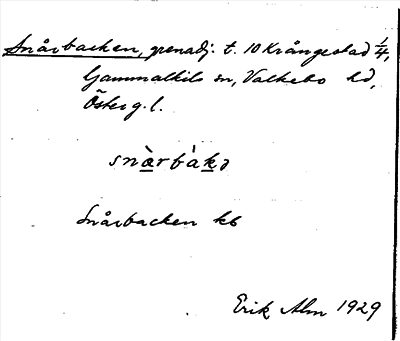 Snårbacken, grenadj. t. 10 Krångestad 1/4,
Gammalkils sn, Valkebo hd,
Österg. l.
snàrbàkə
Snårbacken kb
Erik Alm 1929